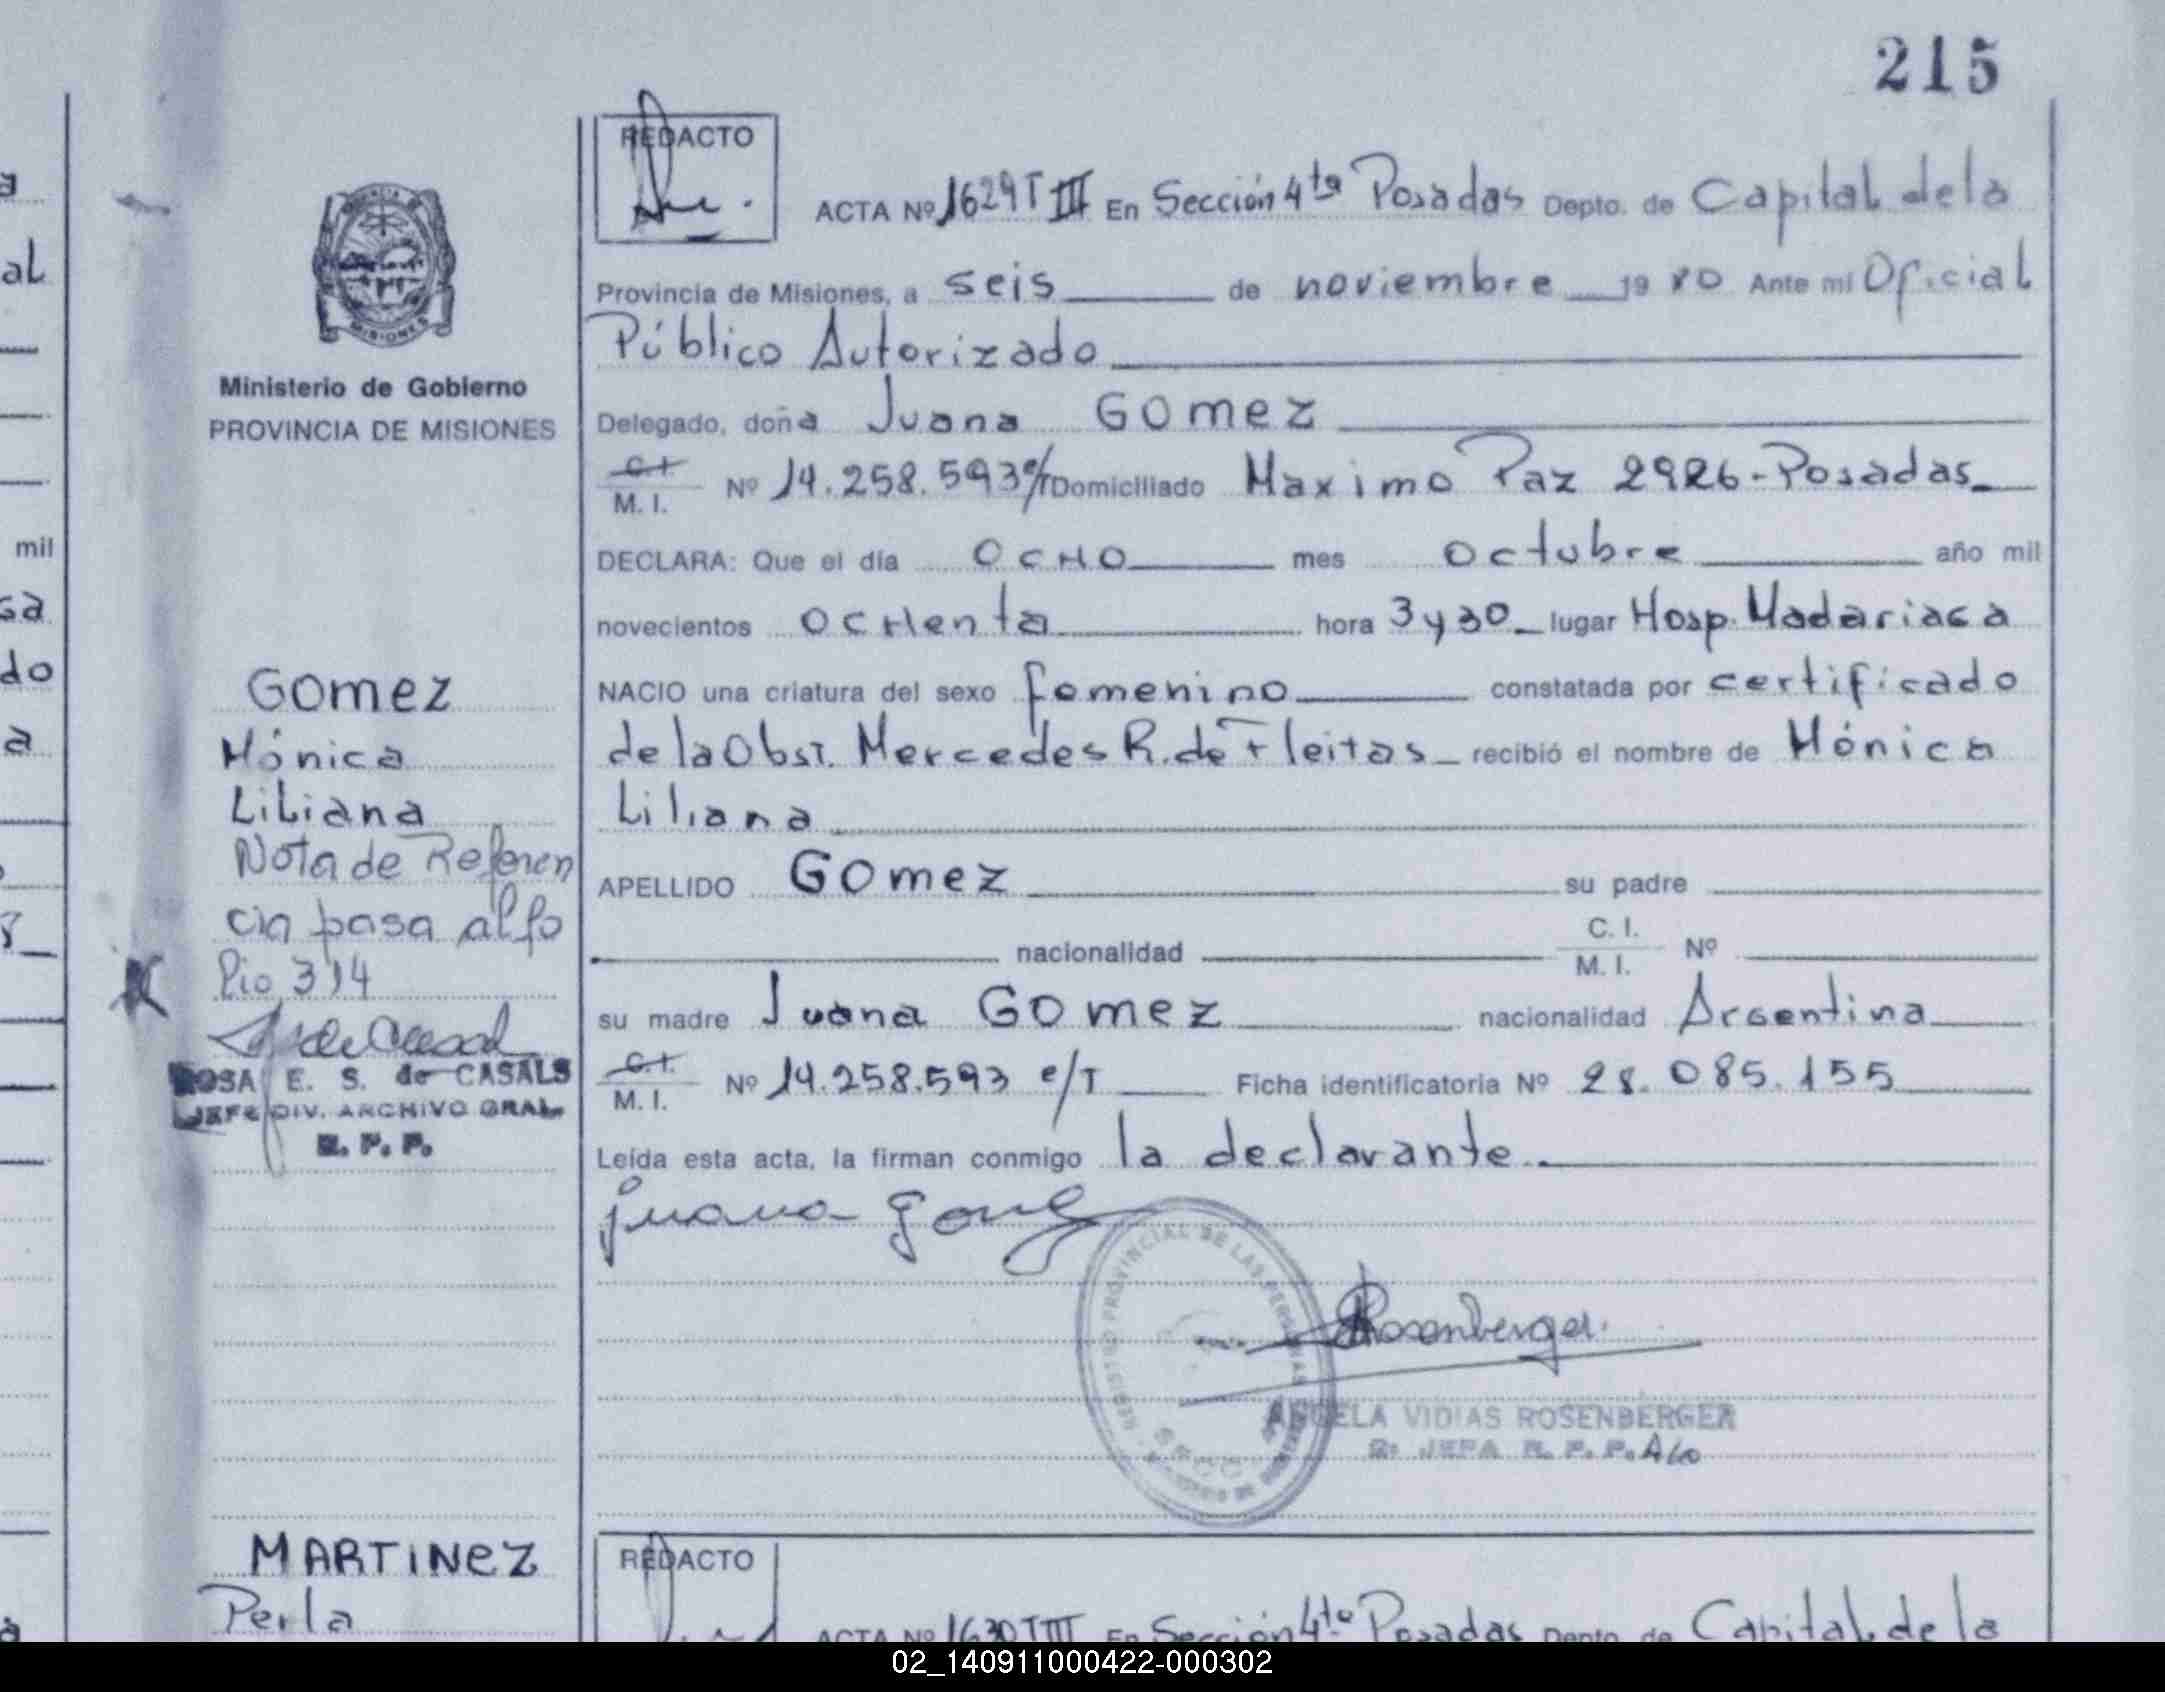 215
REDACTO
ACTA Nº 1629 T III En Sección 4ta Posadas Depto. de Capital de la
Provincia de Misiones, a seis de noviembre 19 80 Ante mi Oficial
Público Autorizado
Delegado, doña Juana GOmez
C.I. M. I. Nº 14.258.593 e/T Domiciliado Maximo Paz 2926-Posadas
DECLARA: Que el día OcHO mes octubre año mil
novecientos ocHenta hora 3 y 30 lugar Hosp. Madariaga
NACIO una criatura del sexo femenino constatada por certificado
de la Obst. Mercedes R. de Fleitas recibió el nombre de Mónica
Liliana
APELLIDO GOmez su padre
nacionalidad C. I. M. I. Nº
su madre Juana GOmez nacionalidad Argentina
C.I. M. I. Nº 14.258.593 e/T Ficha identificatoria Nº 28.085.155
Leída esta acta, la firman conmigo la declarante.
juana gomez
Rosenberger
REGISTRO PROVINCIAL DE LAS PERSONAS
ANGELA VIDIAS ROSENBERGER
2: JEFA R. P. P. A/c
PROVINCIA DE
MISIONES
Ministerio de Gobierno
PROVINCIA DE MISIONES
GOmez
Mónica
Liliana
Nota de Referen
cia pasa al fo
lio 314
ROSA E. S. de CASALS
JEFE DIV. ARCHIVO GRAL.
R. P. P.
MARTiNeZ
Perla
REDACTO
ACTA Nº 1630 T III En Sección 4ta Posadas Depto. de Capital de la
a
al
mil
sa
do
a
02_140911000422-000302